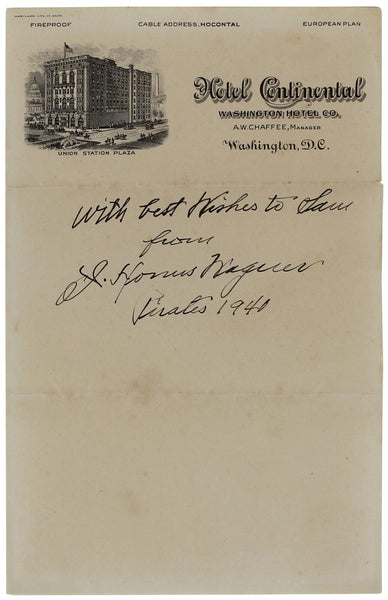 FIREPROOF
CABLE ADDRESS, HOCONTAL
EUROPEAN PLAN
Hotel Continental
WASHINGTON HOTEL CO.,
A.W. CHAFFEE, MANAGER
Washington, D.C.
UNION STATION PLAZA
With best Wishes to Sam
from
J. Honus Wagner
Pirates 1940